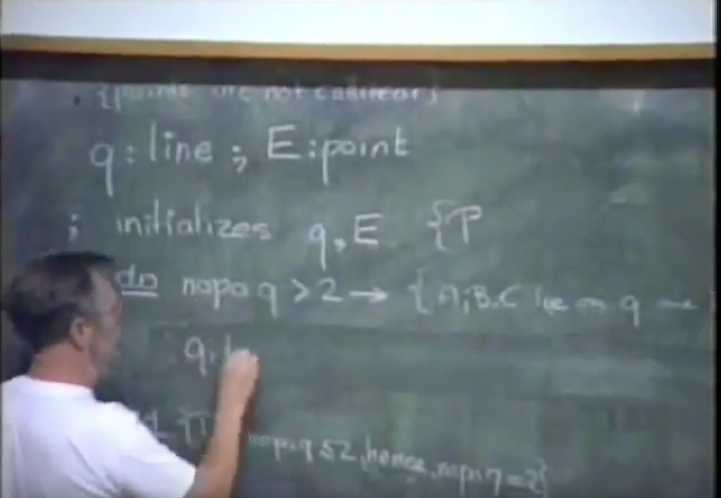 {points are not collinear}
q : line ; E : point
; initializes q, E {P
do nopo q > 2 → { A, B, C lie on q
q
nopo q ≤ 2, hence, nopo q = 2}